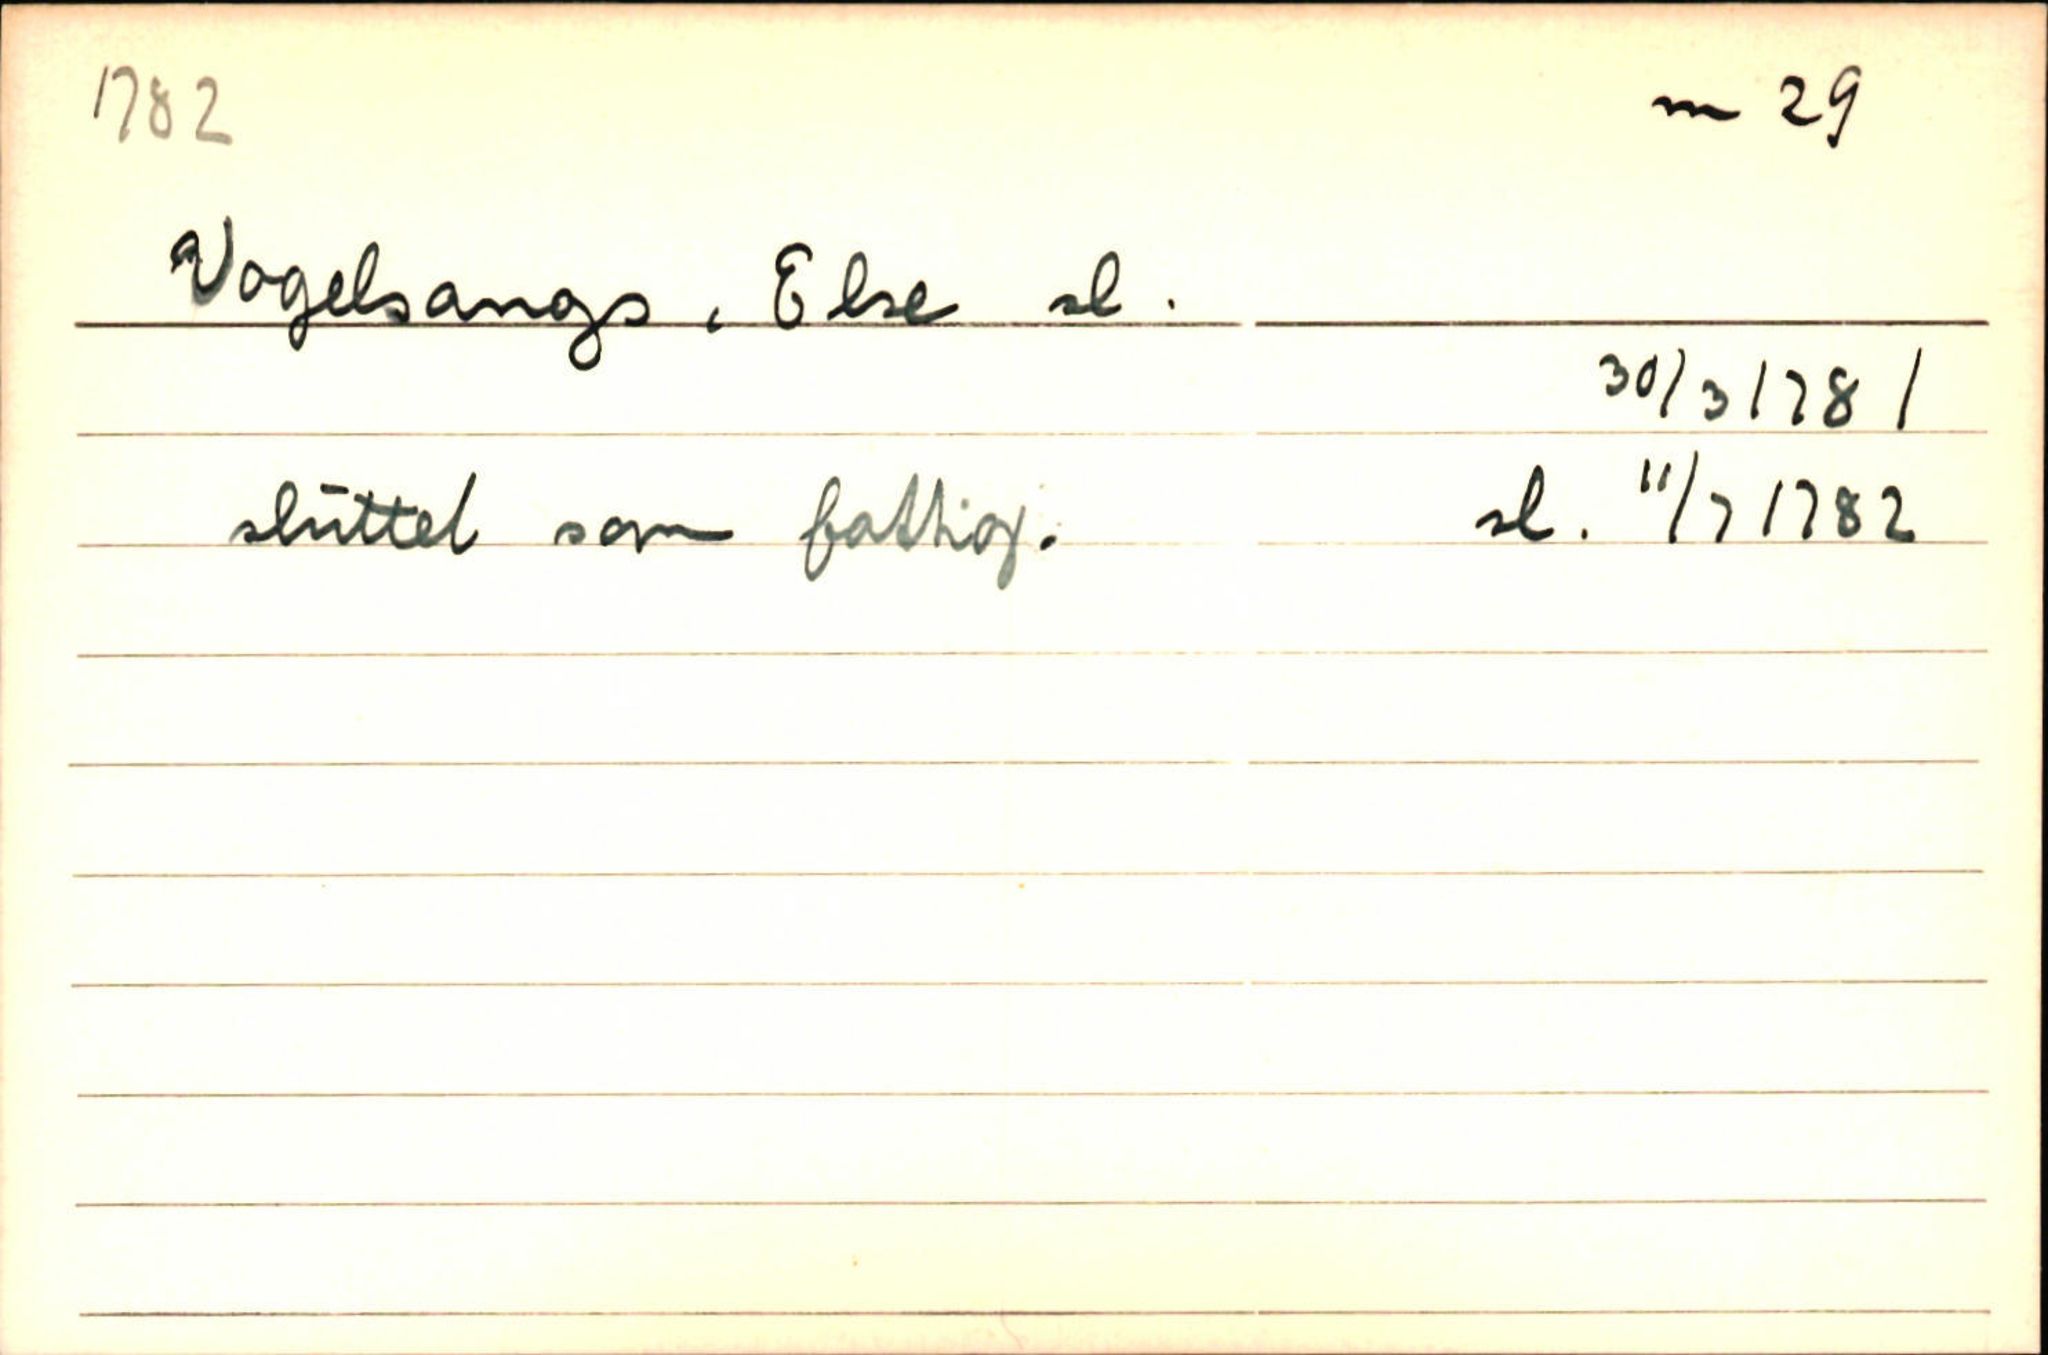 1782 m 29
Vogelsangs, Else sl.
30/3 1781
sluttet som fattig. sl. 11/7 1782